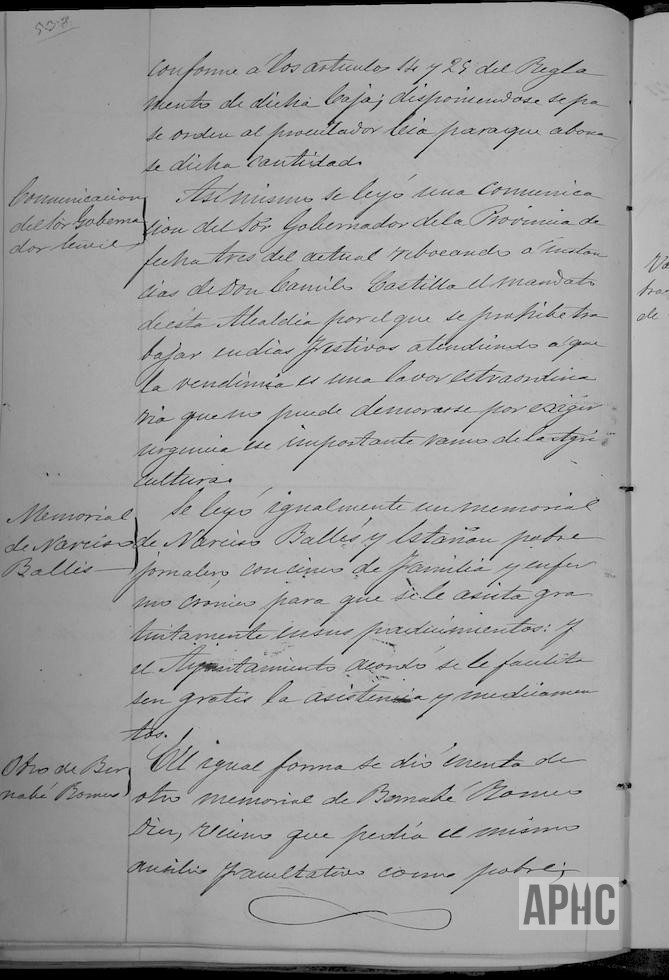 538.
conforme á los articulos 14 y 25 del Regla
mento de dicha Caja; disponiendose se pa
se orden al procurador para que abona
se dicha cantidad.
Comunicacion
del Sor Goberna
dor Civil
Asimismo se leyó una comunica
cion del Sor Gobernador de la Provincia de
fecha tres del actual rebocando á instan
cias de Don Camilo Castilla el mandato
de esta Alcaldia por el que se prohibe tra
bajar en dias festivos atendiendo á que
la vendimia es una lavor estraordina
ria que no puede demorarse por exigir
urgencia ese importante ramo de la Agri
cultura.
Memorial
de Narciso
Ballés
Se leyó igualmente un memorial
de Narciso Ballés y Estañan pobre
jornalero con cinco de familia y enfer
mo crónico para que se le asista gra
tuitamente en sus padecimientos: y
el Ayuntamiento acordó se le facilita
sen gratis la asistencia y medicamen
tos.
Otro de Ber
nabé Romeo
En igual forma se dió cuenta de
otro memorial de Bernabé Romeo
vecino que pedia el mismo
ausilio facultativo como pobre;
APHC